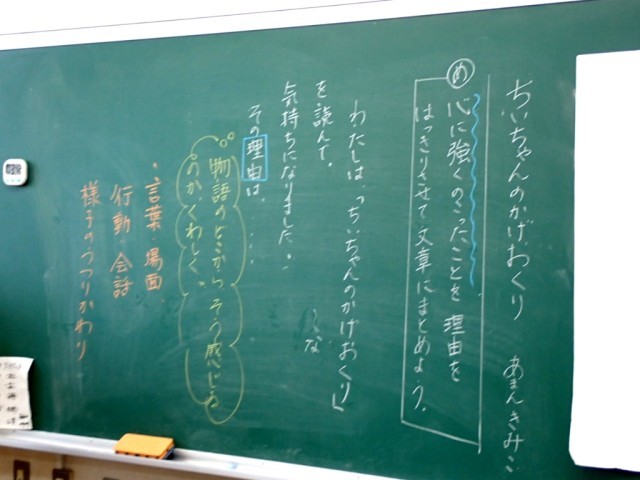 ちいちゃんのかげおくり　あまんきみこ
め
心に強くのこったことを理由を
はっきりさせて文章にまとめよう。
わたしは、「ちいちゃんのかげおくり」
を読んで、　　　　　　　　な
気持ちになりました。
その理由は、・・・
物語のどこから、そう感じた
のか、くわしく、
・言葉・場面
行動・会話
様子のうつりかわり